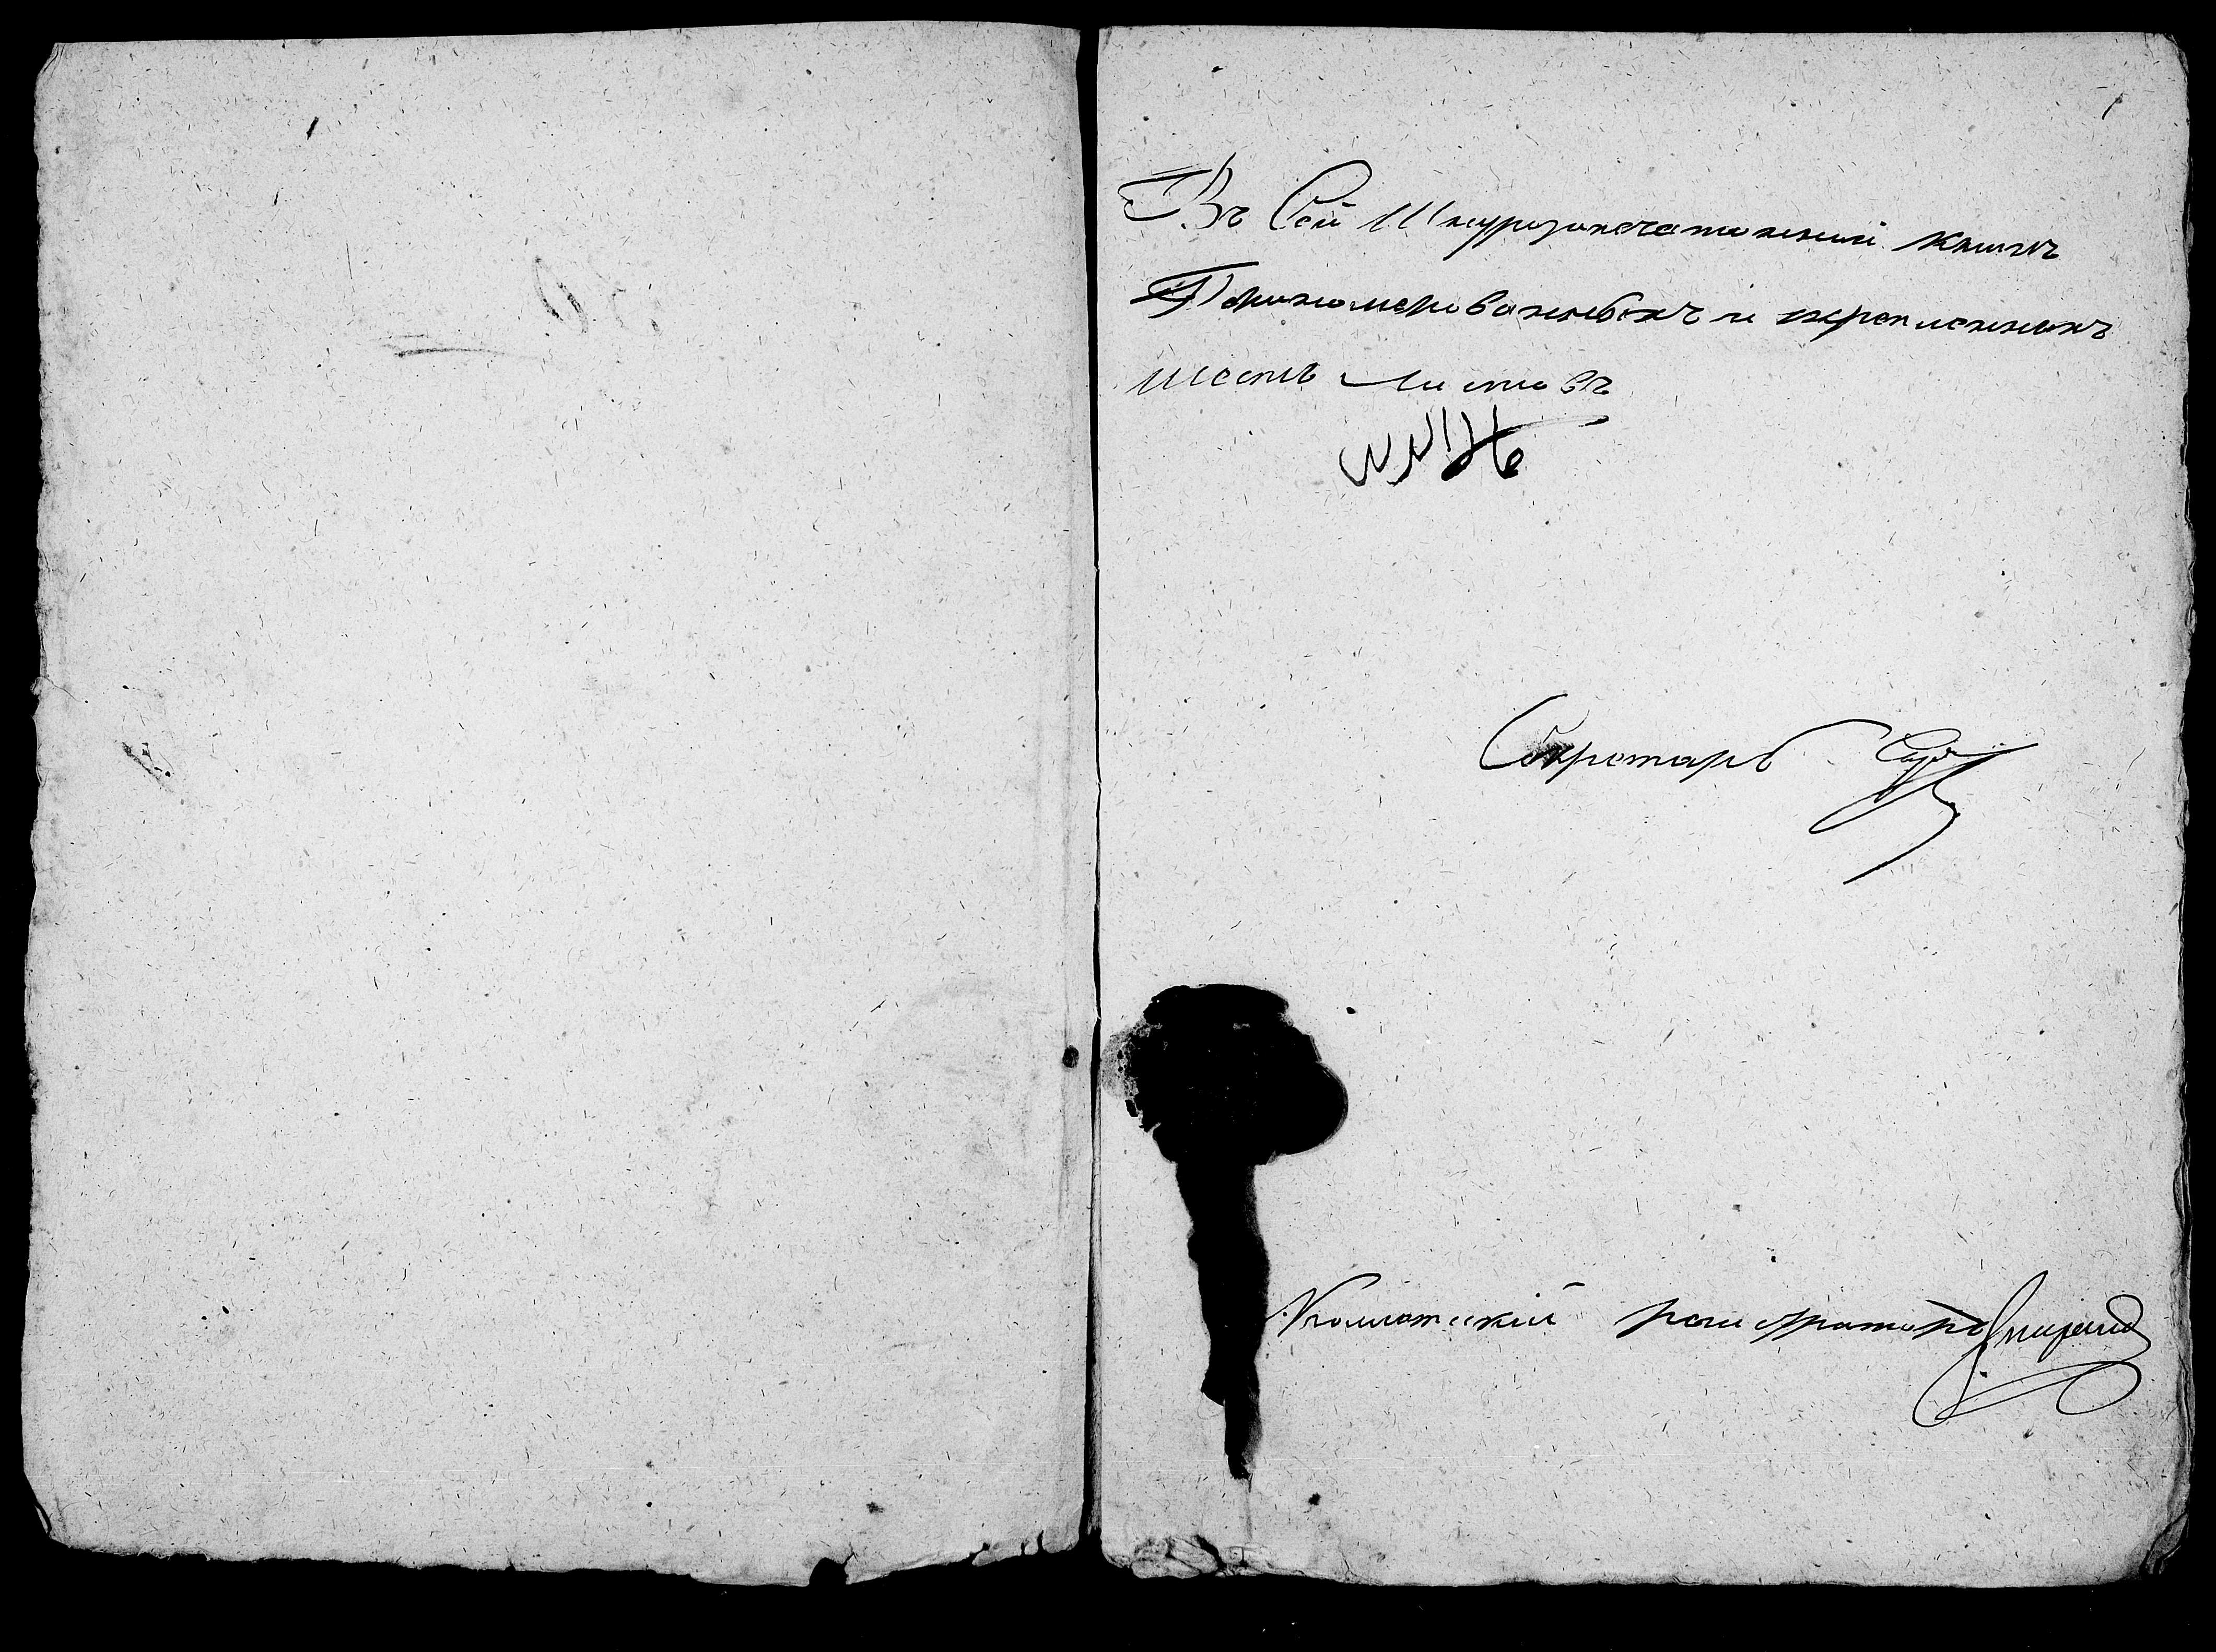 Въ Сей Шнурозапечатанной книгѣ
Пронумерованныхъ и скрепленныхъ
шесть листовъ
Секретарь
Коллежскій регистраторъ